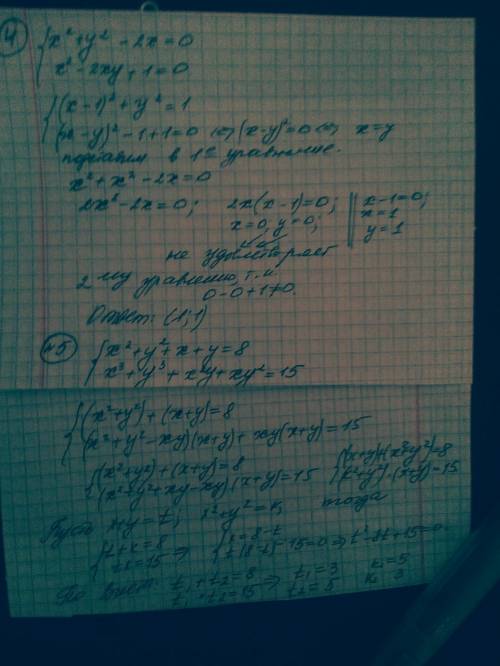 4) { x² + y² - 2x = 0
x² - 2xy + 1 = 0
{ (x-1)² + y² = 1
(x-y)² - 1 + 1 = 0 ⇔ (x-y)² = 0 ⇔ x = y
подставим в 1ое уравнение.
x² + x² - 2x = 0
2x² - 2x = 0; 2x(x-1) = 0; || x - 1 = 0;
x = 0, y = 0; || x = 1
y = 1
не удовлетворяет
2му уравнению, т.к.
0 - 0 + 1 ≠ 0.
Ответ: (1; 1)
5) { x² + y² + x + y = 8
x³ + y³ + x²y + xy² = 15
{ (x² + y²) + (x+y) = 8
(x² + y² - xy)(x+y) + xy(x+y) = 15
{ (x² + y²) + (x+y) = 8 { (x+y) + (x² + y²) = 8
(x² + y² + xy - xy)(x+y) = 15 (x² + y²)·(x+y) = 15
Пусть x+y = t; x² + y² = k, тогда
{ t + k = 8 ⇒ { k = 8 - t
tk = 15 t(8-t) - 15 = 0 ⇒ t² - 8t + 15 = 0
По Виет: t₁ + t₂ = 8 ⇒ t₁ = 3 k₁ = 5
t₁ · t₂ = 15 t₂ = 5 k₂ 3